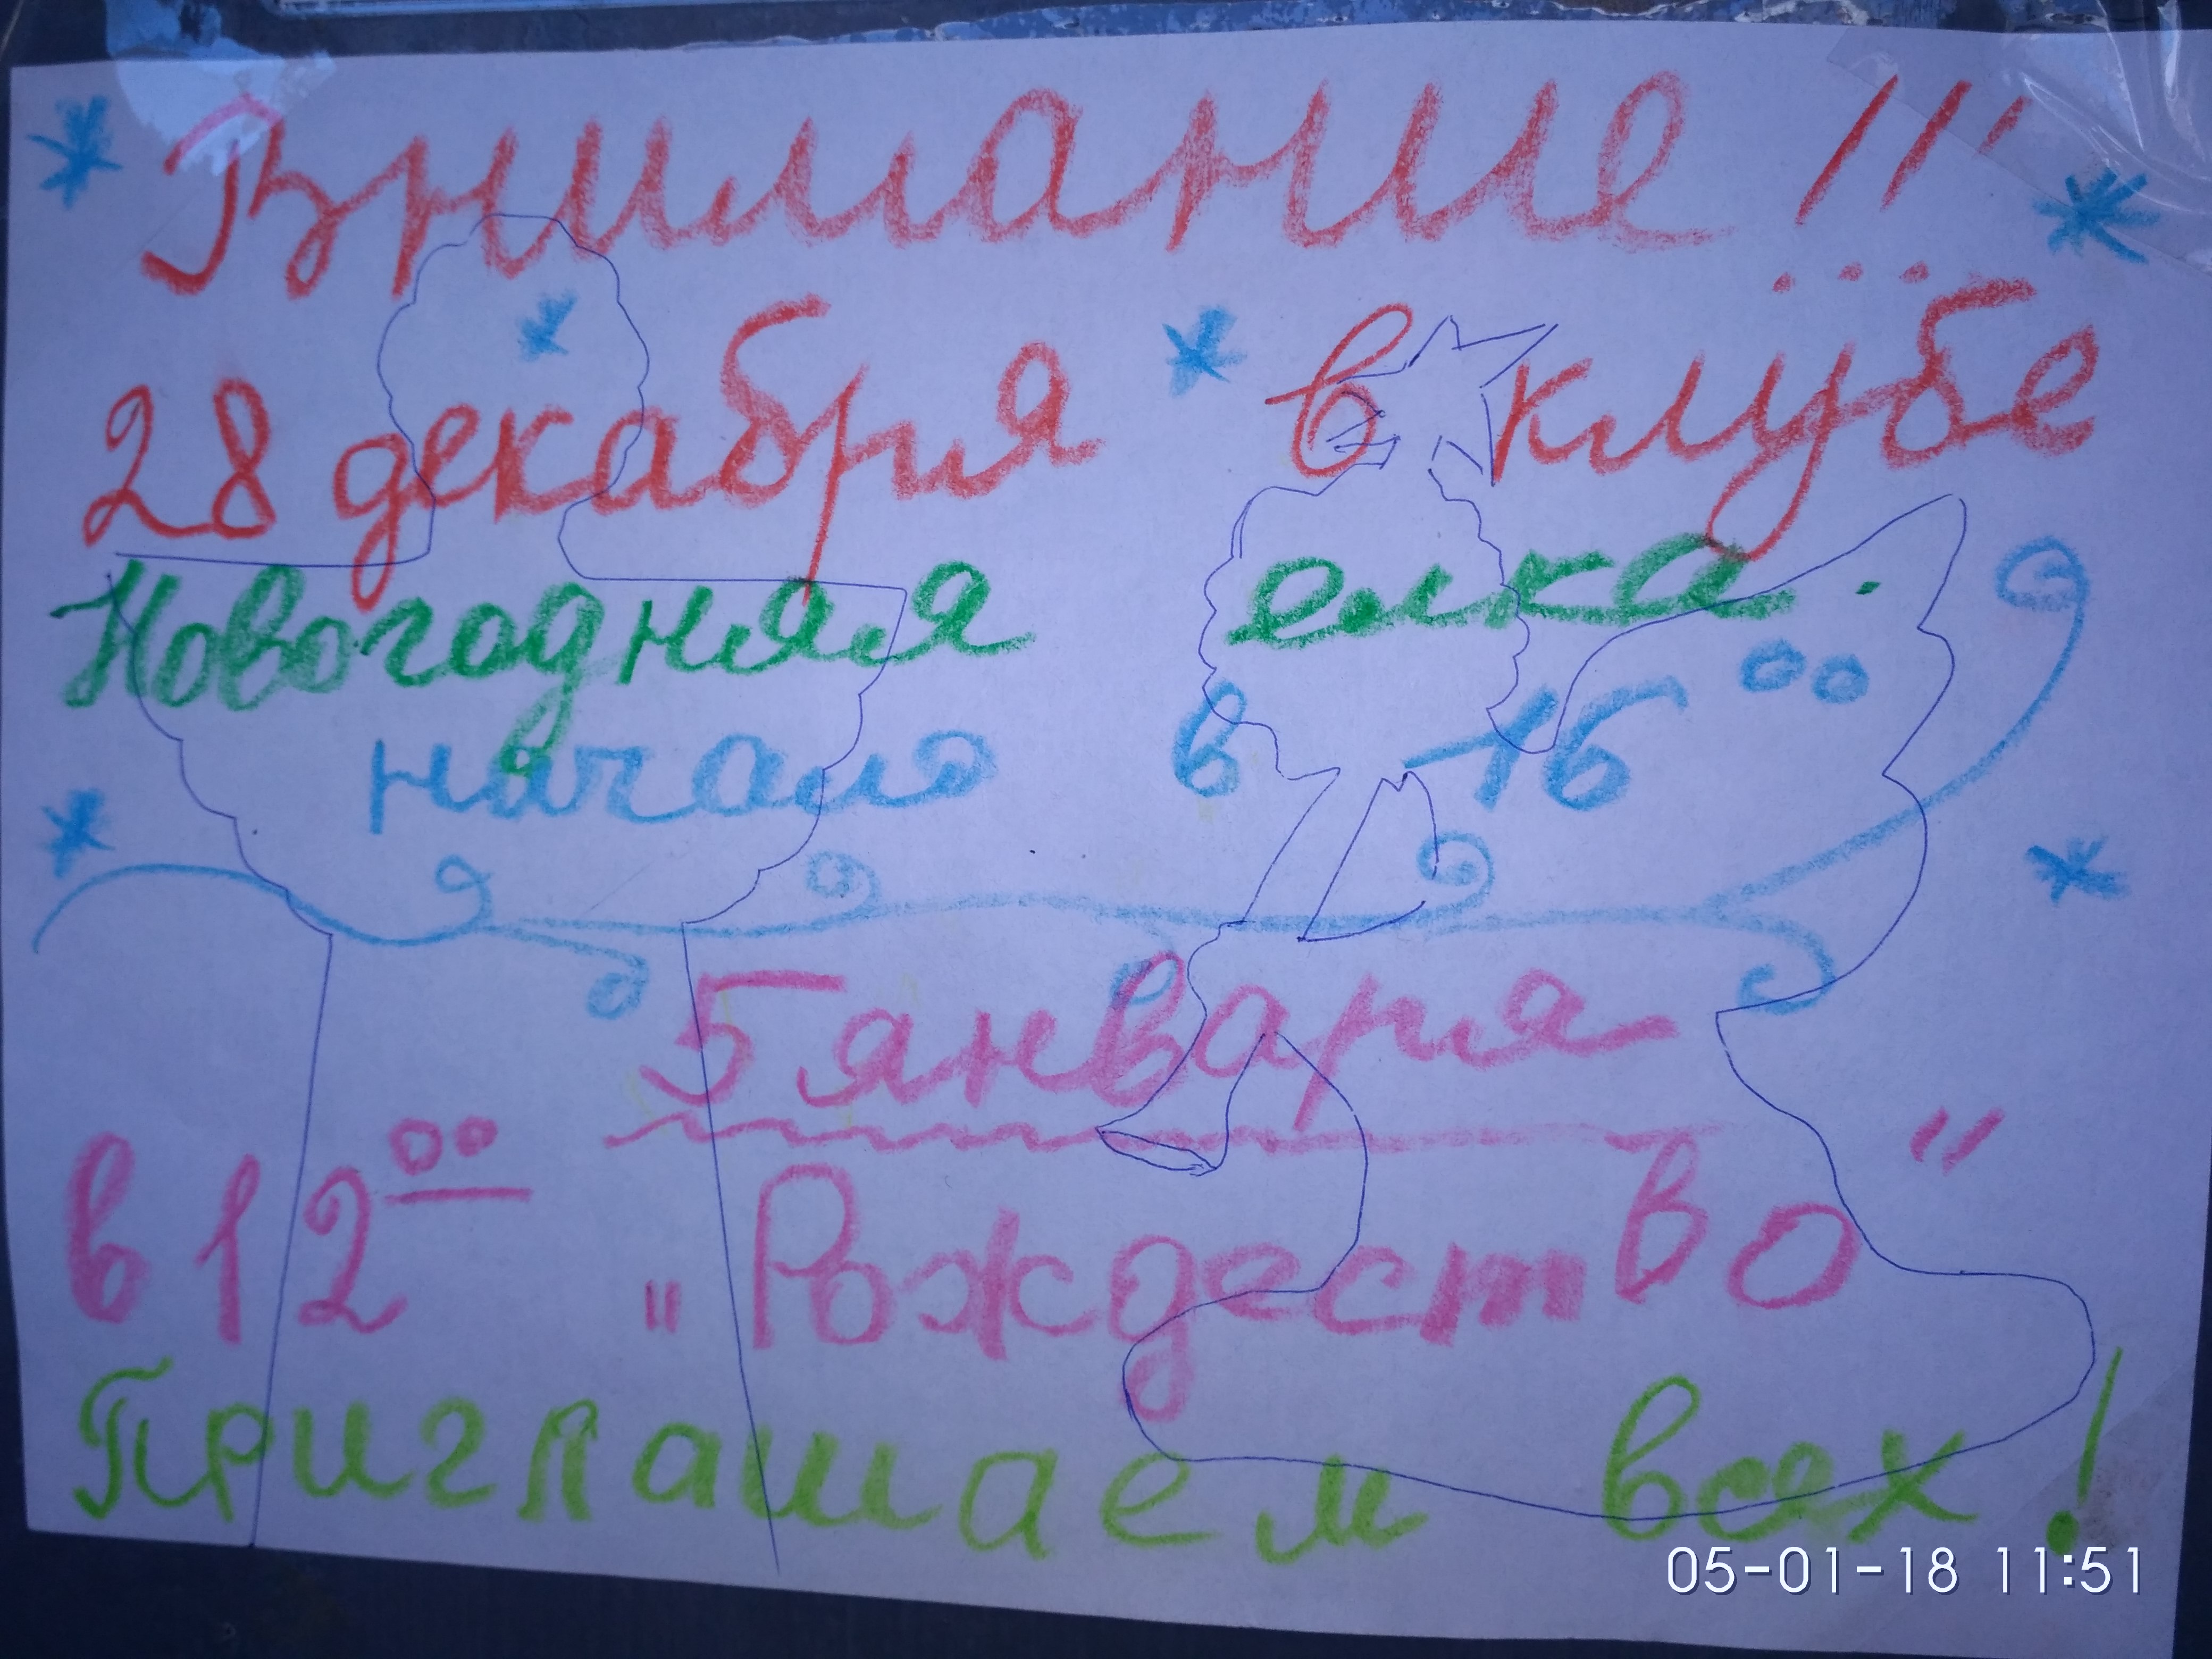 Внимание!!!
28 декабря в клубе
Новогодняя елка.
начало в 16 00
5 января
в 12 00 "Рождество"
Приглашаем всех!
05-01-18 11:51